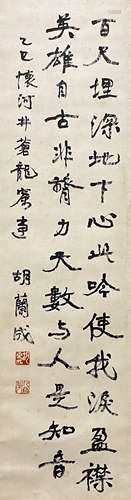 百尺埋深地下心此吟使我淚盈襟
英雄自古非膂力天數与人是知音
乙巳懷河井蒼龍窟 胡蘭成